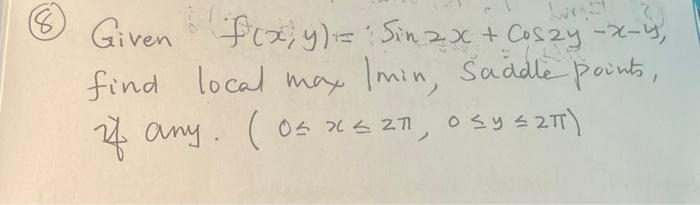 ⑧ Given f(x,y) = Sin2x + Cos2y -x-y,
find local max/min, Saddle points,
if any. ( 0 ≤ x ≤ 2π, 0 ≤ y ≤ 2π)